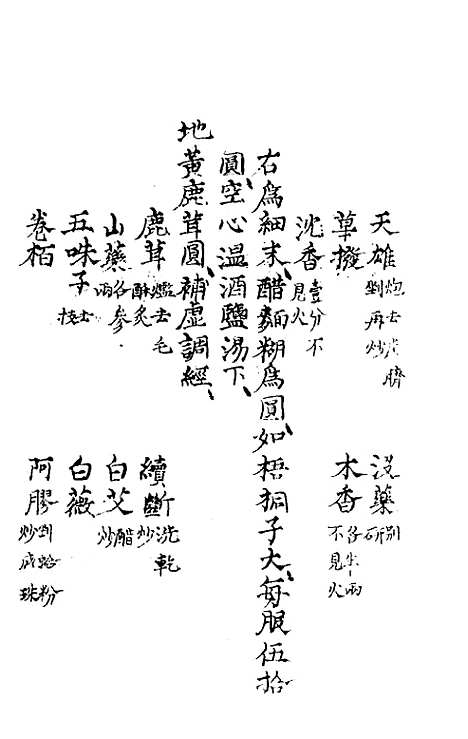 天雄炮去皮臍剉再炒 没藥別研
草撥 木香各半兩不見火
沈香壹分不見火
右爲細末醋麵糊爲圓如梧桐子大每服伍拾
圓空心溫酒鹽湯下
地黃鹿茸圓補虛調經
鹿茸燎去毛酥炙 續斷洗乾炒
山藥各參兩 白艾醋炒
五味子去枝 白薇
卷栢 阿膠剉蛤粉炒成珠